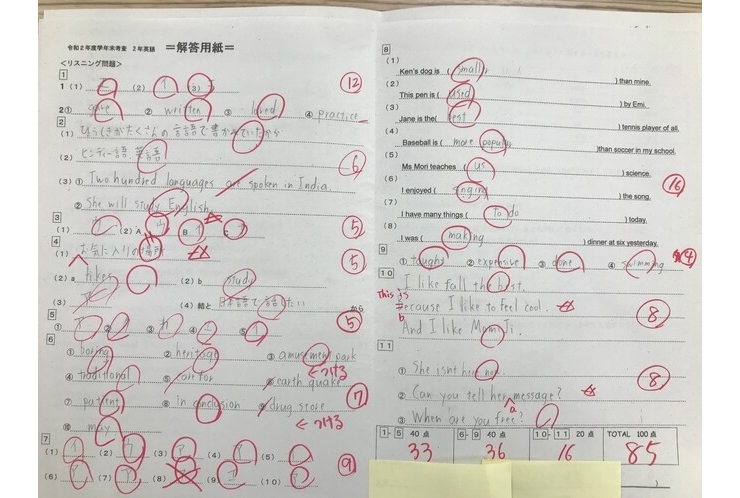 令和2年度学年末考査 2年英語 =解答用紙=
<リスニング問題>
1
1 (1) (2) イ (3)
12
2① gave ② written ③ loved ④ practice
2
(1) ひょうしきがたくさんの言語で書かれていたから
(2) ヒンディー語 英語
6
(3) ① Two hundred languages are spoken in India.
② She will study English.
3
(1) (2) A B イ C
5
4
(1) お気に入りの場所
5
(2) a likes (2) b study
(3) (4) 結と日本語で話したい から
5
① ② ③ ④ ⑤
5
6
① boring ② heritage ③ amusement park
④ traditional ⑤ care for ⑥ earth quake
←つける
⑦ patient ⑧ In conclusion ⑨ drug store
7
←つける
⑩ may
7
(1) (2) (3) (4) (5)
(6) (7) (8) (9) (10)
9
8
(1)
Ken's dog is ( smaller ) than mine.
(2)
This pen is ( used ) by Emi.
(3)
Jane is the ( best ) tennis player of all.
(4)
Baseball is ( more popular ) than soccer in my school.
(5)
Ms Mori teaches ( us ) science.
(6)
I enjoyed ( singing ) the song.
16
(7)
I have many things ( to do ) today.
(8)
I was ( making ) dinner at six yesterday.
9
① taught ② expensive ③ done ④ swimming
4
10
I like fall the best.
This is
because I like to feel cool.
And I like Momiji.
8
11
① She isn't here now.
② Can you tell her message?
a
8
③ When are you free?
1-5 40点 6-9 40点 10-11 20点 TOTAL 100点
33 36 16 85